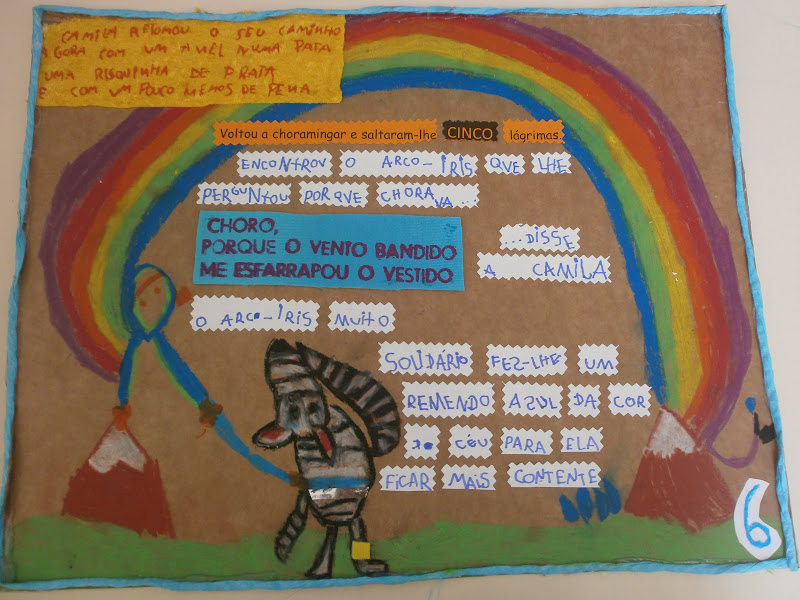 CAMILA RETOMOU O SEU CAMINHO
AGORA COM UM ANEL NUMA PATA
UMA RISQUINHA DE PRATA
E COM UM POUCO MENOS DE PENA.
Voltou a choramingar e saltaram-lhe CINCO lágrimas.
ENCONTROU O ARCO-ÍRIS QUE LHE
PERGUNTOU PORQUE CHORAVA...
CHORO,
PORQUE O VENTO BANDIDO
ME ESFARRAPOU O VESTIDO
...DISSE
A CAMILA
O ARCO-ÍRIS MUITO
SOLIDÁRIO FEZ-LHE UM
REMENDO AZUL DA COR
DO CÉU PARA ELA
FICAR MAIS CONTENTE
6